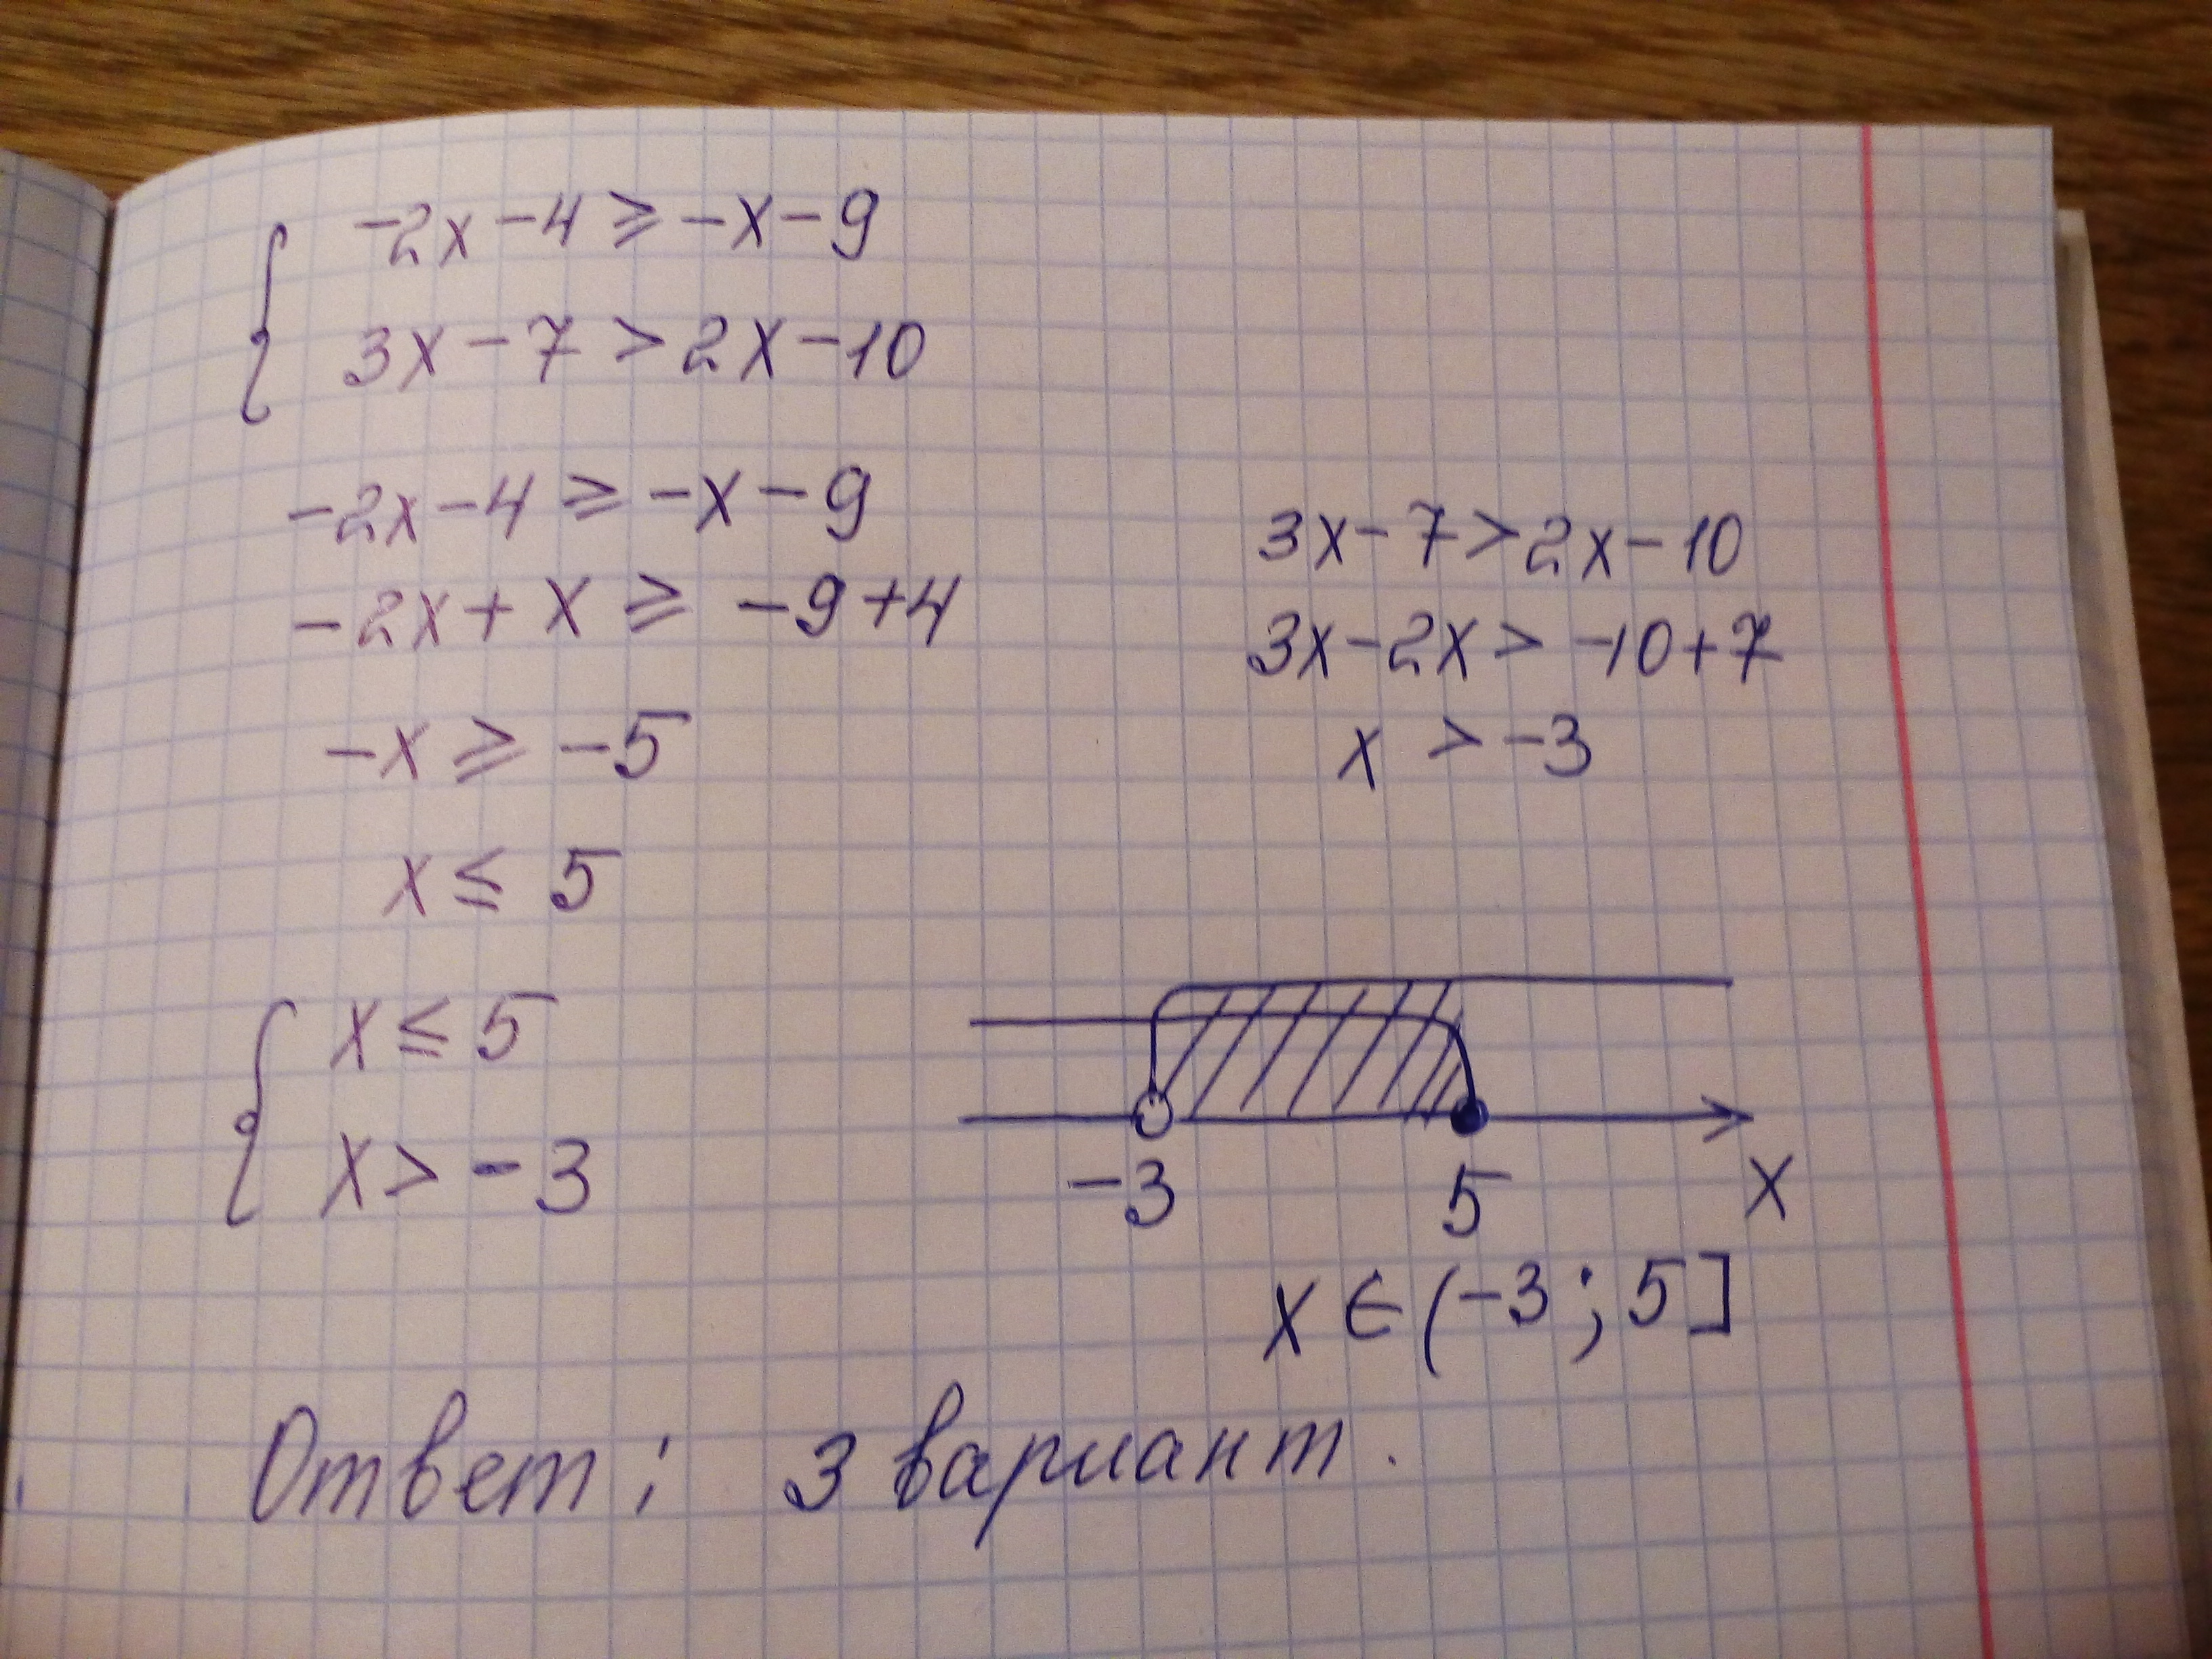 -2x-4 ⩾ -x-9
3x-7 > 2x-10
-2x-4 ⩾ -x-9
-2x+x ⩾ -9+4
-x ⩾ -5
x ≤ 5
3x-7>2x-10
3x-2x> -10+7
x > -3
x ≤ 5
x > -3
-3 5 x
x ∈ (-3; 5]
Ответ: 3 вариант.